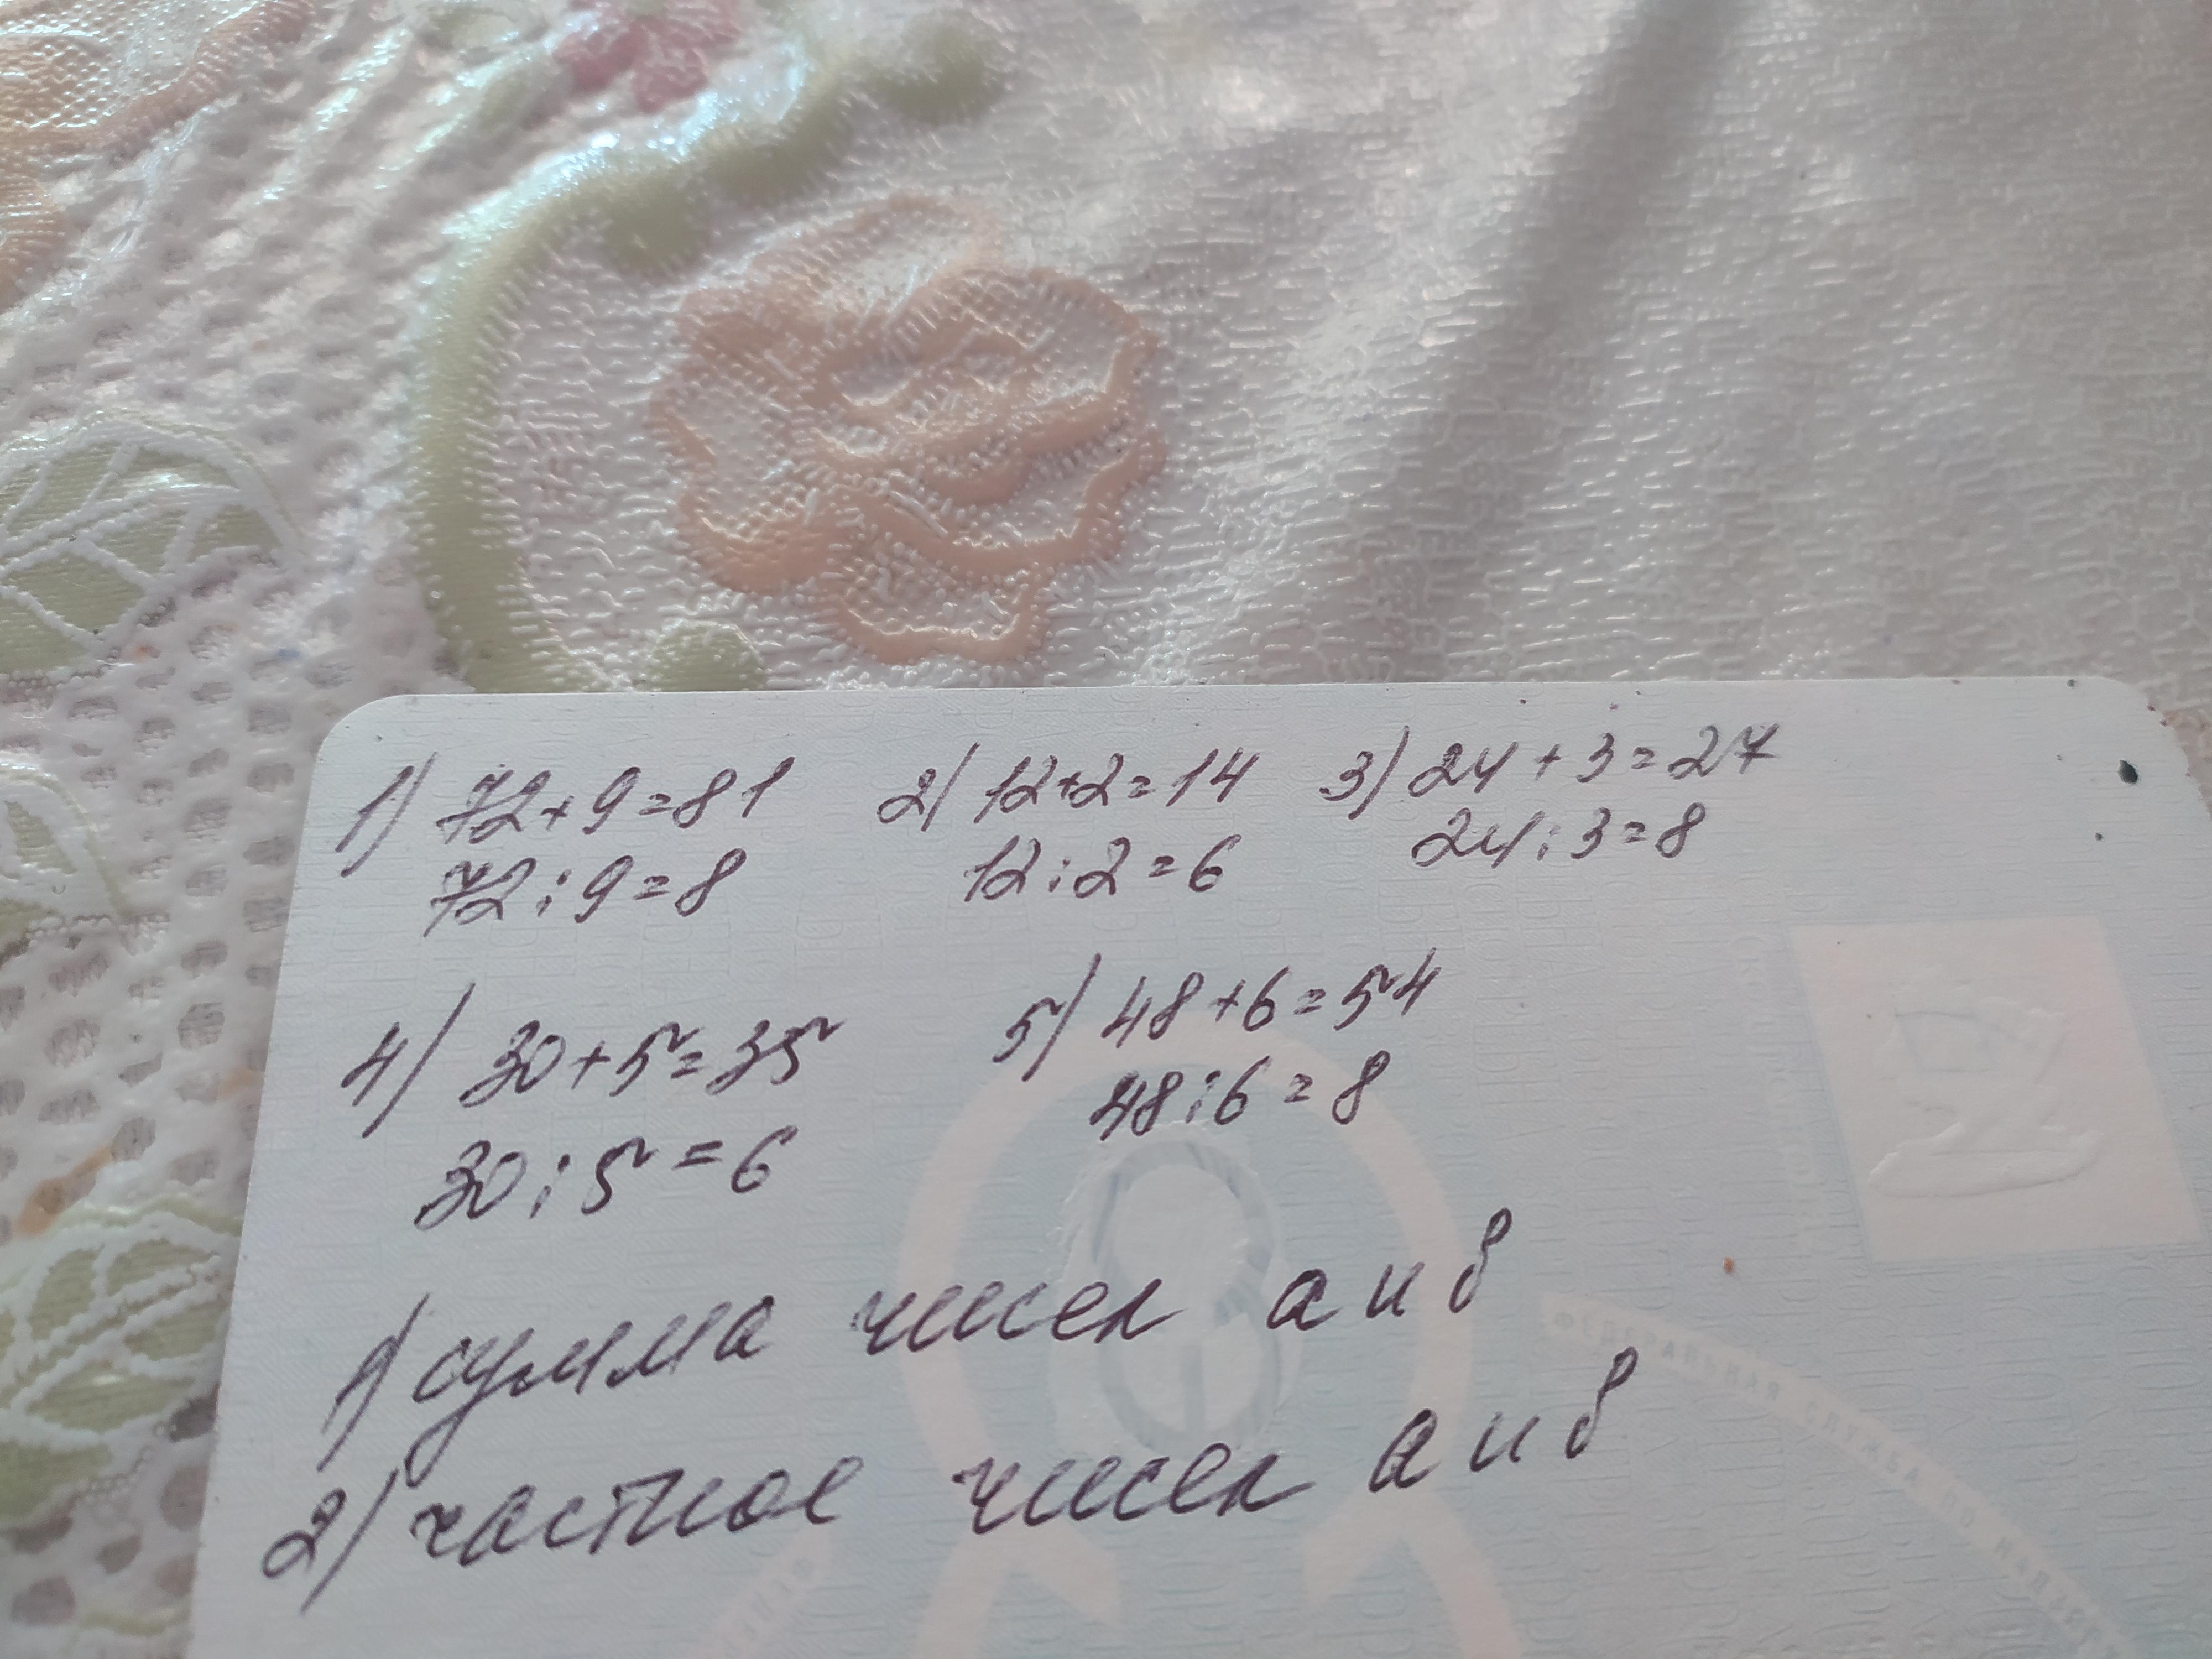 1) 72+9=81 2) 12+2=14 3) 24+3=27
72:9=8 12:2=6 24:3=8
4) 30+5=35 5) 48+6=54
30:5=6 48:6=8
1) сумма чисел а и в
2) частное чисел а и в